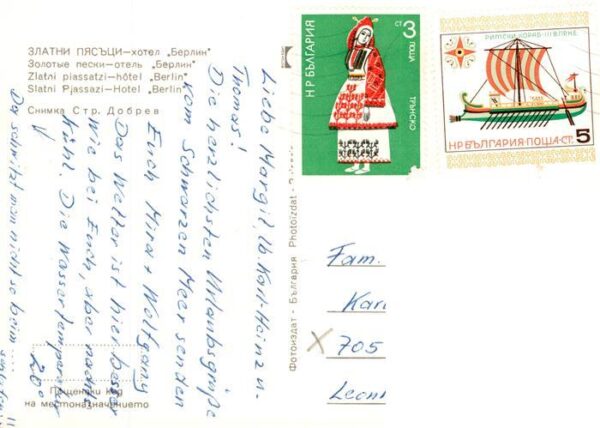 ЗЛАТНИ ПЯСЪЦИ—хотел „Берлин"
Золотые пески—отель „Берлин"
Zlatni piassatzi—hôtel „Berlin"
Slatni Pjassazi—Hotel „Berlin"
Снимка Стр. Добрев
Liebe Margit, lb. Karl-Heinz u.
Thomas!
Die herzlichsten Urlaubsgrüße
vom Schwarzen Meer senden
Euch Mira + Wolfgang
Das Wetter ist hier besser
wie bei Euch, aber nachts
kühl. Die Wassertemperatur
20°
Da schwitzt man nicht so beim
Пощенски код
на местоназначението
Фотоиздат - България Photoizdat -
НР БЪЛГАРИЯ
3 СТ
ПОЩА
ТРЪНСКО
РИМСКИ КОРАБ-III В.
НР БЪЛГАРИЯ ПОЩА·СТ. 5
Fam.
Karl
X 705
Leon